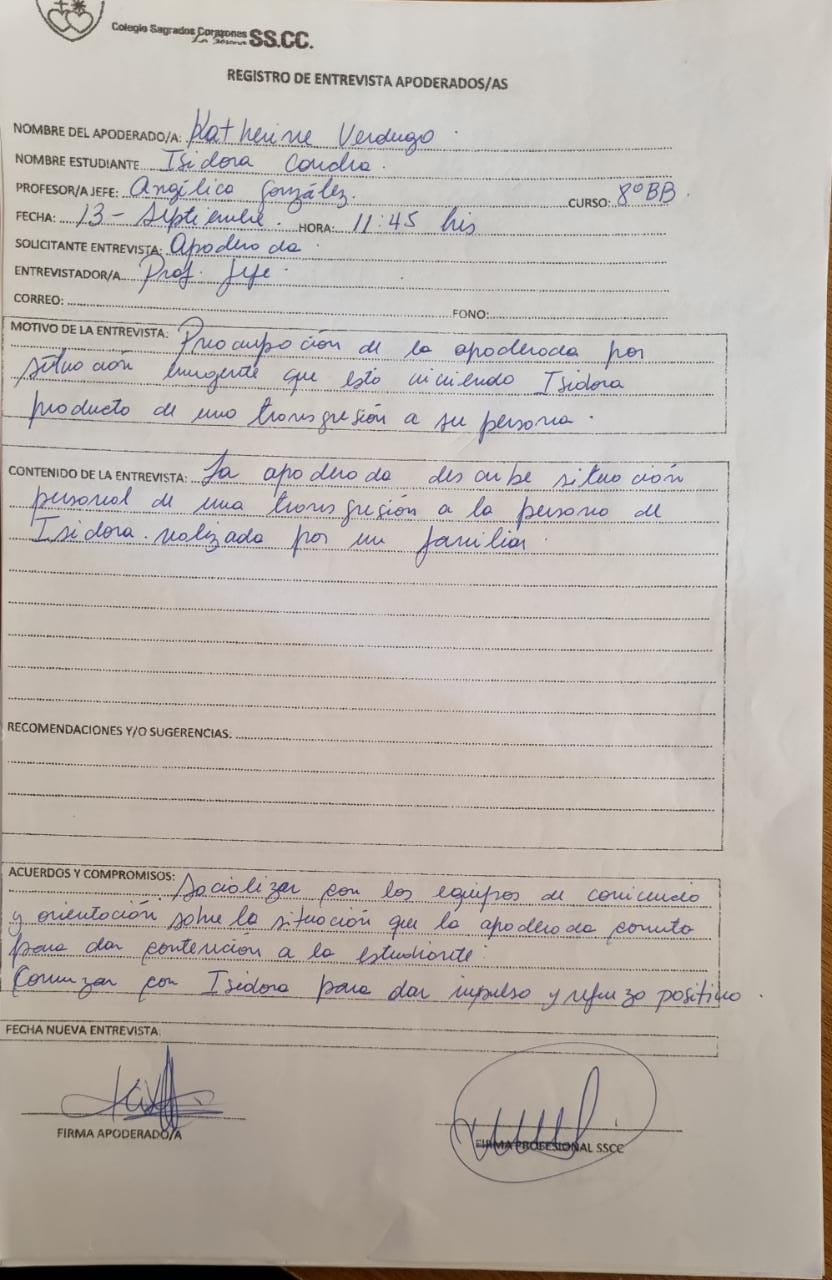 Colegio Sagrados Corazones SS.CC.
La Serena
REGISTRO DE ENTREVISTA APODERADOS/AS
NOMBRE DEL APODERADO/A: Katherine Verdugo
NOMBRE ESTUDIANTE Isidora Condia.
PROFESOR/A JEFE: Angélica González. CURSO: 8º BB.
FECHA: 13 - Septiembre. HORA: 11:45 hrs
SOLICITANTE ENTREVISTA: Apoderada
ENTREVISTADOR/A Prof. Jefe.
CORREO: FONO:
MOTIVO DE LA ENTREVISTA: Preocupación de la apoderada por
situación emergente que está viviendo Isidora
producto de una transgresión a su persona.
CONTENIDO DE LA ENTREVISTA: La apoderada describe situación
personal de una transgresión a la persona de
Isidora realizada por un familiar.
RECOMENDACIONES Y/O SUGERENCIAS:
ACUERDOS Y COMPROMISOS:
Socializar con los equipos de convivencia
y orientación sobre la situación que la apoderada
para dar contención a la estudiante.
con Isidora para dar impulso y refuerzo positivo.
FECHA NUEVA ENTREVISTA:
FIRMA APODERADO/A
FIRMA PROFESIONAL SSCC